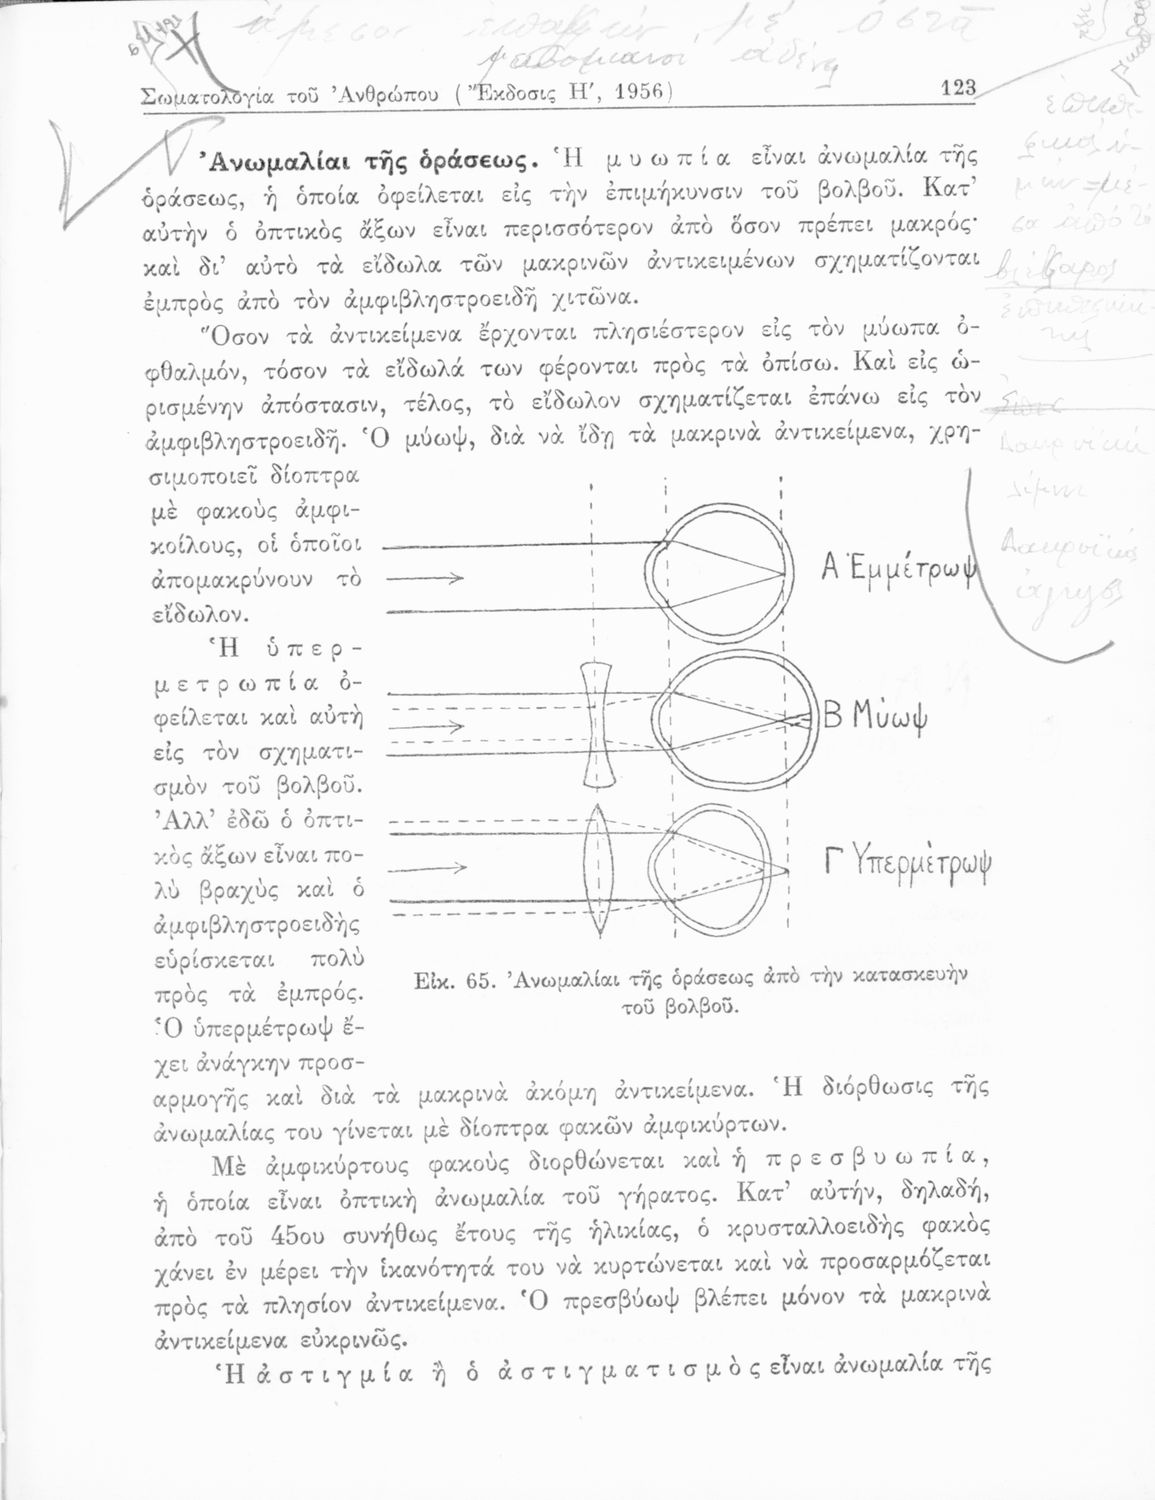 Σωματολογία τοῦ Ἀνθρώπου (Ἔκδοσις Η′, 1956) 123
Ἀνωμαλίαι τῆς ὁράσεως. Ἡ μυωπία εἶναι ἀνωμαλία τῆς
ὁράσεως, ἡ ὁποία ὀφείλεται εἰς τὴν ἐπιμήκυνσιν τοῦ βολβοῦ. Κατ’
αὐτὴν ὁ ὀπτικὸς ἄξων εἶναι περισσότερον ἀπὸ ὅσον πρέπει μακρός·
καὶ δι’ αὐτὸ τὰ εἴδωλα τῶν μακρινῶν ἀντικειμένων σχηματίζονται
ἐμπρὸς ἀπὸ τὸν ἀμφιβληστροειδῆ χιτῶνα.
Ὅσον τὰ ἀντικείμενα ἔρχονται πλησιέστερον εἰς τὸν μύωπα ὀ-
φθαλμόν, τόσον τὰ εἴδωλά των φέρονται πρὸς τὰ ὀπίσω. Καὶ εἰς ὡ-
ρισμένην ἀπόστασιν, τέλος, τὸ εἴδωλον σχηματίζεται ἐπάνω εἰς τὸν
ἀμφιβληστροειδῆ. Ὁ μύωψ, διὰ νὰ ἴδῃ τὰ μακρινὰ ἀντικείμενα, χρη-
σιμοποιεῖ δίοπτρα
μὲ φακοὺς ἀμφι-
κοίλους, οἱ ὁποῖοι
ἀπομακρύνουν τὸ
εἴδωλον.
Ἡ ὑπερ-
μετρωπία ὀ-
φείλεται καὶ αὐτὴ
εἰς τὸν σχηματι-
σμὸν τοῦ βολβοῦ.
Ἀλλ’ ἐδῶ ὁ ὀπτι-
κὸς ἄξων εἶναι πο-
λὺ βραχὺς καὶ ὁ
ἀμφιβληστροειδὴς
εὑρίσκεται πολὺ
πρὸς τὰ ἐμπρός.
Ὁ ὑπερμέτρωψ ἔ-
χει ἀνάγκην προσ-
Α Ἐμμέτρωψ
Β Μύωψ
Γ Ὑπερμέτρωψ
Εἰκ. 65. Ἀνωμαλίαι τῆς ὁράσεως ἀπὸ τὴν κατασκευὴν
τοῦ βολβοῦ.
αρμογῆς καὶ διὰ τὰ μακρινὰ ἀκόμη ἀντικείμενα. Ἡ διόρθωσις τῆς
ἀνωμαλίας του γίνεται μὲ δίοπτρα φακῶν ἀμφικύρτων.
Μὲ ἀμφικύρτους φακοὺς διορθώνεται καὶ ἡ πρεσβυωπία,
ἡ ὁποία εἶναι ὀπτικὴ ἀνωμαλία τοῦ γήρατος. Κατ’ αὐτήν, δηλαδή,
ἀπὸ τοῦ 45ου συνήθως ἔτους τῆς ἡλικίας, ὁ κρυσταλλοειδὴς φακὸς
χάνει ἐν μέρει τὴν ἱκανότητά του νὰ κυρτώνεται καὶ νὰ προσαρμόζεται
πρὸς τὰ πλησίον ἀντικείμενα. Ὁ πρεσβύωψ βλέπει μόνον τὰ μακρινὰ
ἀντικείμενα εὐκρινῶς.
Ἡ ἀστιγμία ἢ ὁ ἀστιγματισμὸς εἶναι ἀνωμαλία τῆς